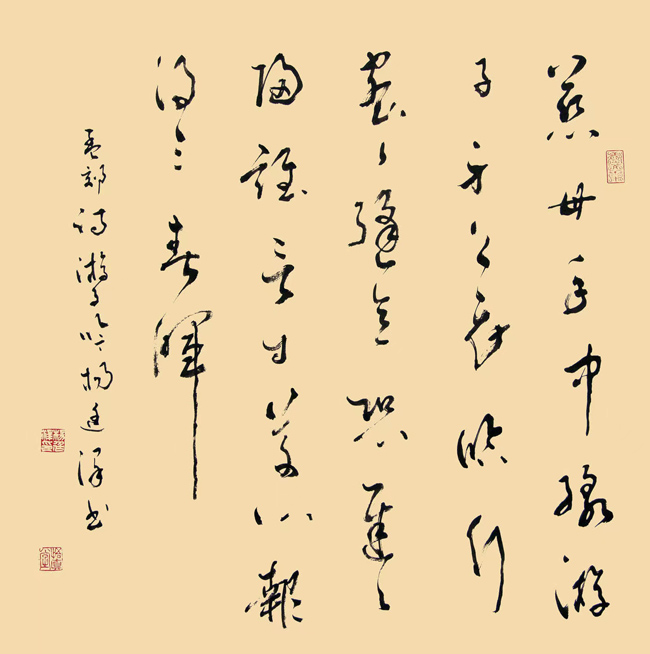 慈母手中線游
子身上衣臨行
密々縫意恐遲々
歸誰言寸草心報
得三春暉
孟郊詩游子吟楊書